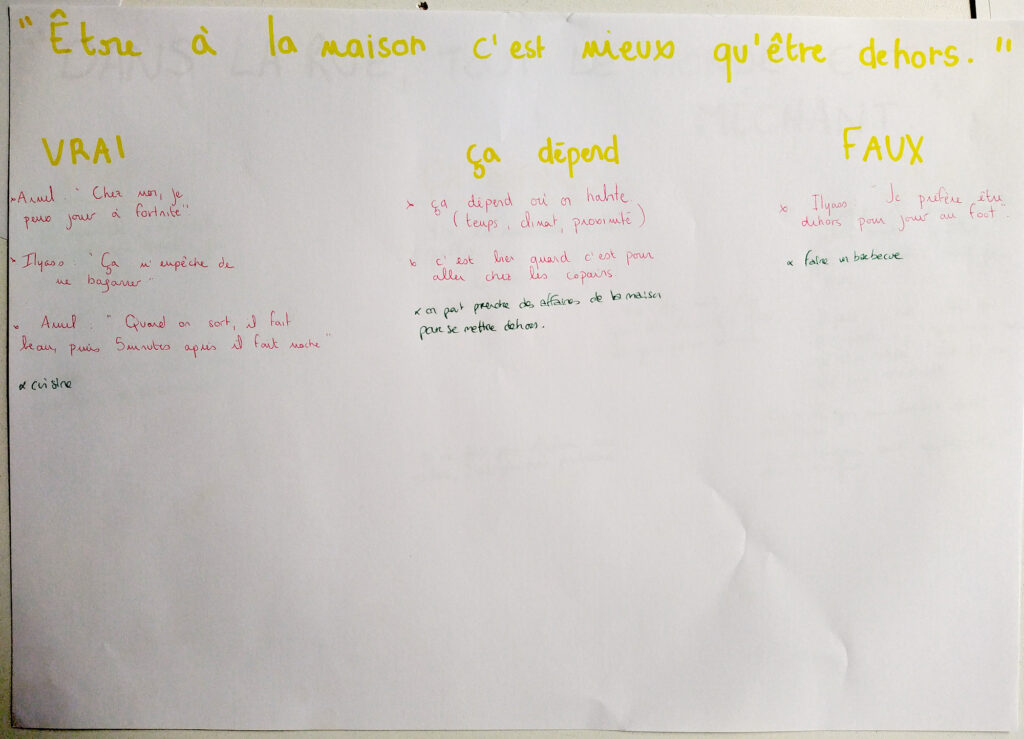 "Être à la maison c'est mieux qu'être dehors."
VRAI
Amel : "Chez moi, je
peux jouer à fortnite"
Ilyass : "Ça m'empêche de
me bagarrer"
Amel : "Quand on sort, il fait
beau, puis 5 minutes après il fait moche"
cuisine
ça dépend
ça dépend où on habite
(temps, climat, proximité)
c'est bien quand c'est pour
aller chez les copains
on peut prendre des affaires de la maison
pour se mettre dehors.
FAUX
Ilyass : "Je préfère être
dehors pour jouer au foot".
faire un barbecue
DANS LA RUE
MÉCHANT